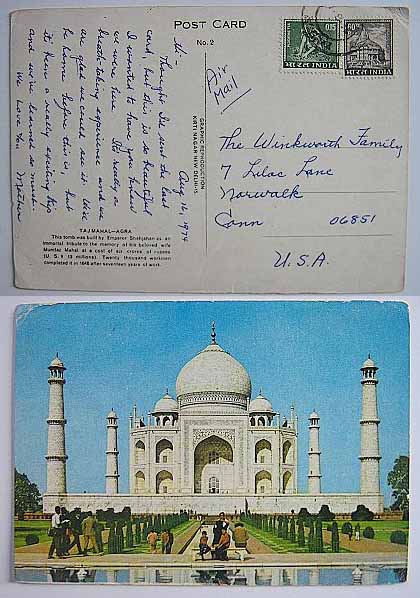 POST CARD
No. 2
0.15
भारत INDIA
60
भारत INDIA
Air
Mail
Aug 16, 1974
Hi—
Thought I'd sent the last
card, but this is so beautiful
I wanted to have you know
we were here. It's really a
breath-taking experience and we
are glad we could see it. We'll
be home before this is, but
it's been a really exciting trip
and we've learned so much.
We love you
Mother
TAJMAHAL—AGRA
This tomb was built by Emperor Shahjahan as an
immortal tribute to the memory of his beloved wife
Mumtaz Mahal at a cost of six crores of rupees
(U.S. $ 13 millions). Twenty thousand workmen
completed it in 1648 after seventeen years of work.
GRAPHIC REPRODUCTION
KIRTI NAGAR NEW DELHI-15.
The Winkworth Family
7 Lilac Lane
Norwalk
Conn 06851
U.S.A.